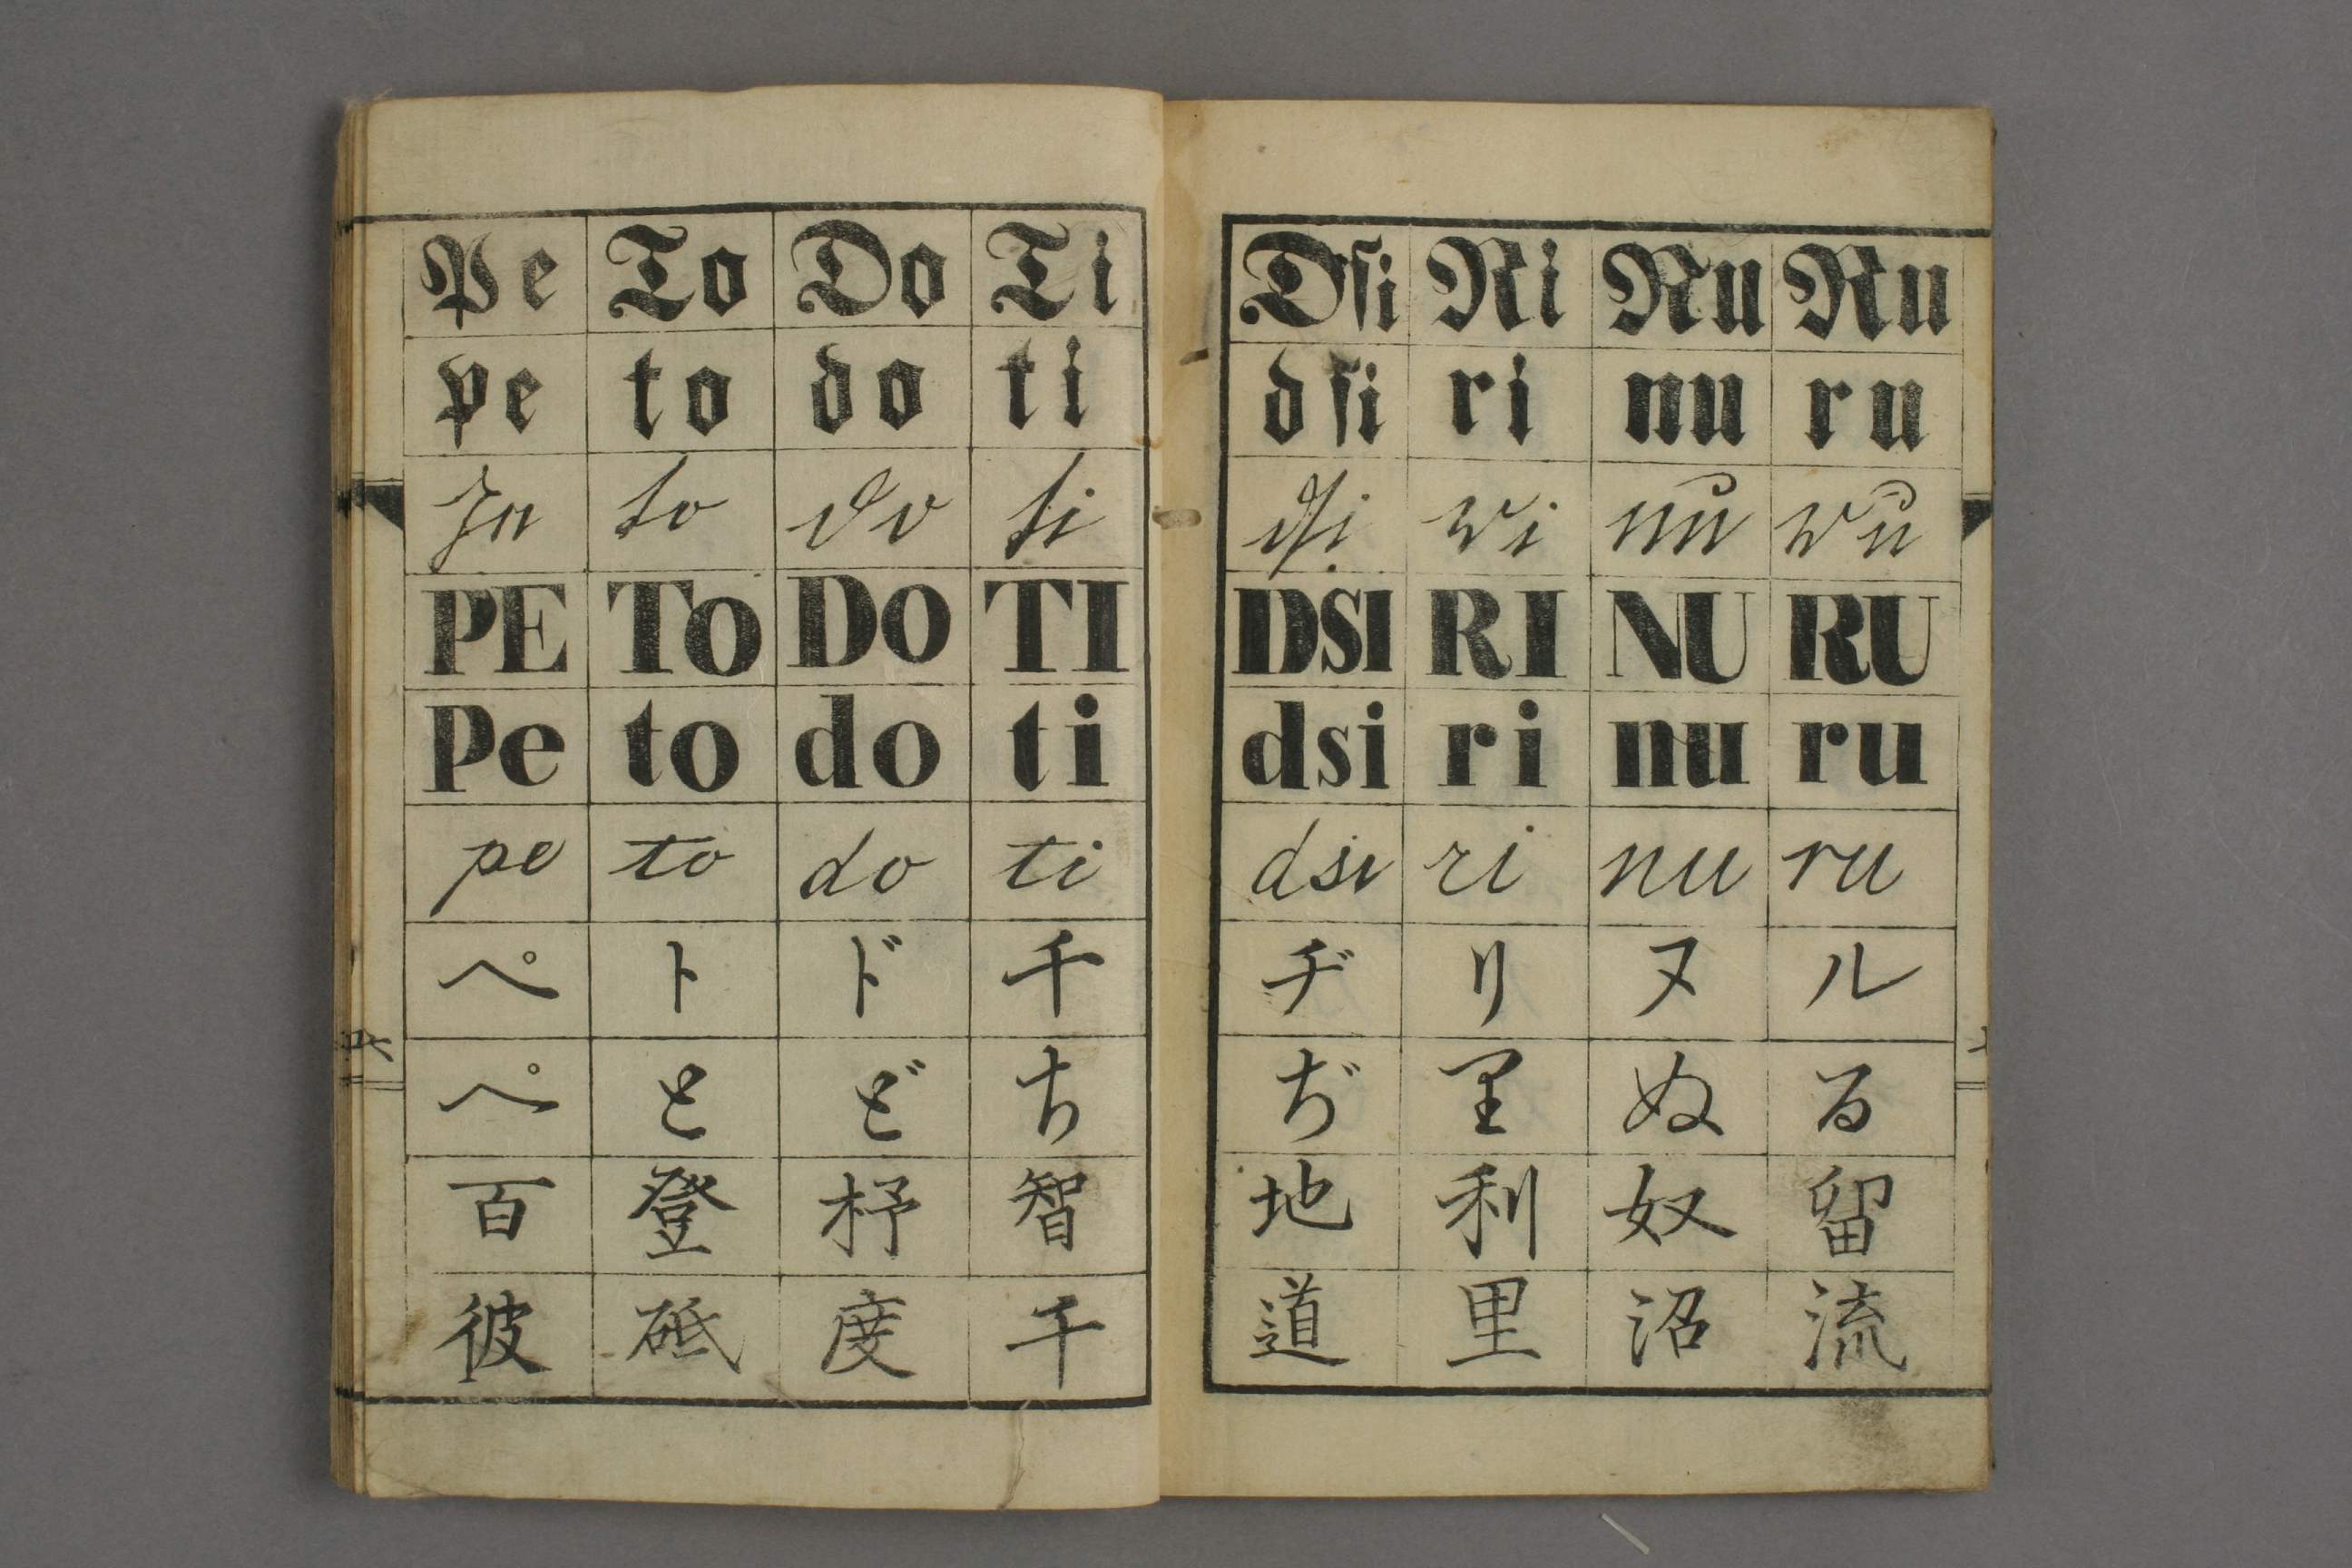 Pe To Do Ti
pe to do ti
pe to do ti
PE To Do TI
Pe to do ti
pe to do ti
ペ ト ド チ
ぺ と ど ち
百 登 杼 智
彼 砥 度 千
Dſi Ri Nu Ru
dſi ri nu ru
dſi ri nu ru
DSI RI NU RU
dsi ri nu ru
dsi ri nu ru
ヂ リ ヌ ル
ぢ 里 ぬ る
地 利 奴 留
道 里 沼 流